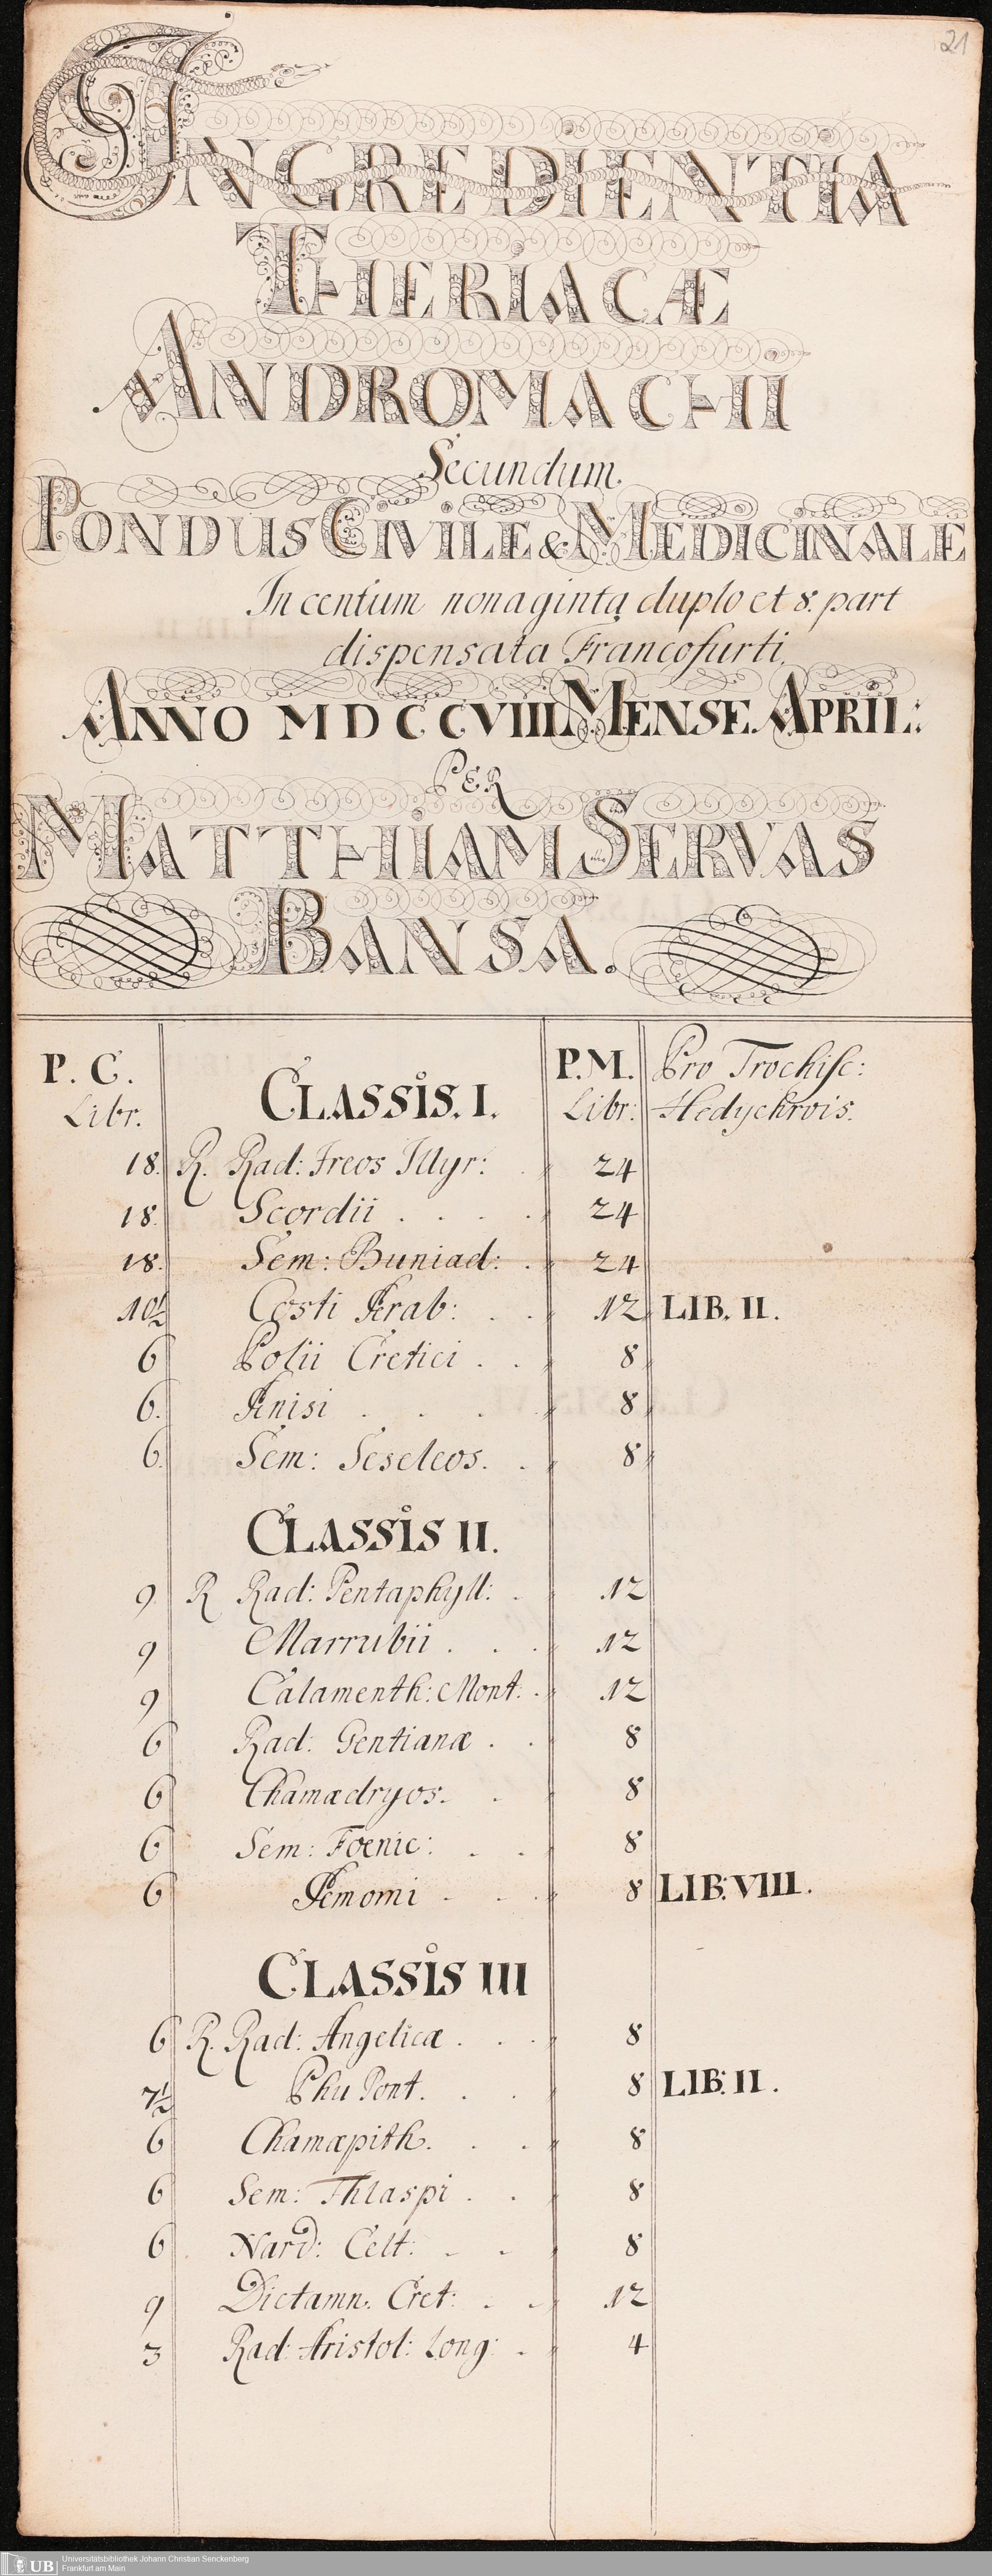 21
INGREDIENTIA
THERIACÆ
ANDROMACHI
Secundum.
PONDUS CIVILE & MEDICINALE
In centum nonaginta duplo et 8. part
dispensata Francofurti.
ANNO MDCCVIIII. MENSE. APRIL:
PER
MATTHIAM SERVAS
BANSA.
P. C. CLASSIS. I. P.M. Pro Trochisc:
Libr. Libr: Hedychrois.
18. R. Rad: Ireos Illyr: . 24
18. Scordii . . . . 24
18. Sem: Buniad: . 24
10½ Costi Arab: . . 12 LIB. II.
6 Polii Cretici . . 8
6. Anisi . . . 8
6. Sem: Seseleos. . 8
CLASSIS II.
9. R Rad: Pentaphyll: . 12
9 Marrubii . . . 12
9 Calamenth: Mont: . 12
6 Rad: Gentianæ . . 8
6 Chamædryos. . 8
6 Sem: Foenic: . . 8
6 Amomi . . . 8 LIB. VIII.
CLASSIS III
6 R. Rad: Angelicæ . . . 8
7½ Phu Pont. . . 8 LIB. II.
6 Chamæpith. . . 8
6 Sem: Thlaspi . . 8
6 Nard: Celt: . . 8
9 Dictamn. Cret: . . 12
3 Rad: Aristol: Long: . 4
UB
Universitätsbibliothek Johann Christian Senckenberg
Frankfurt am Main